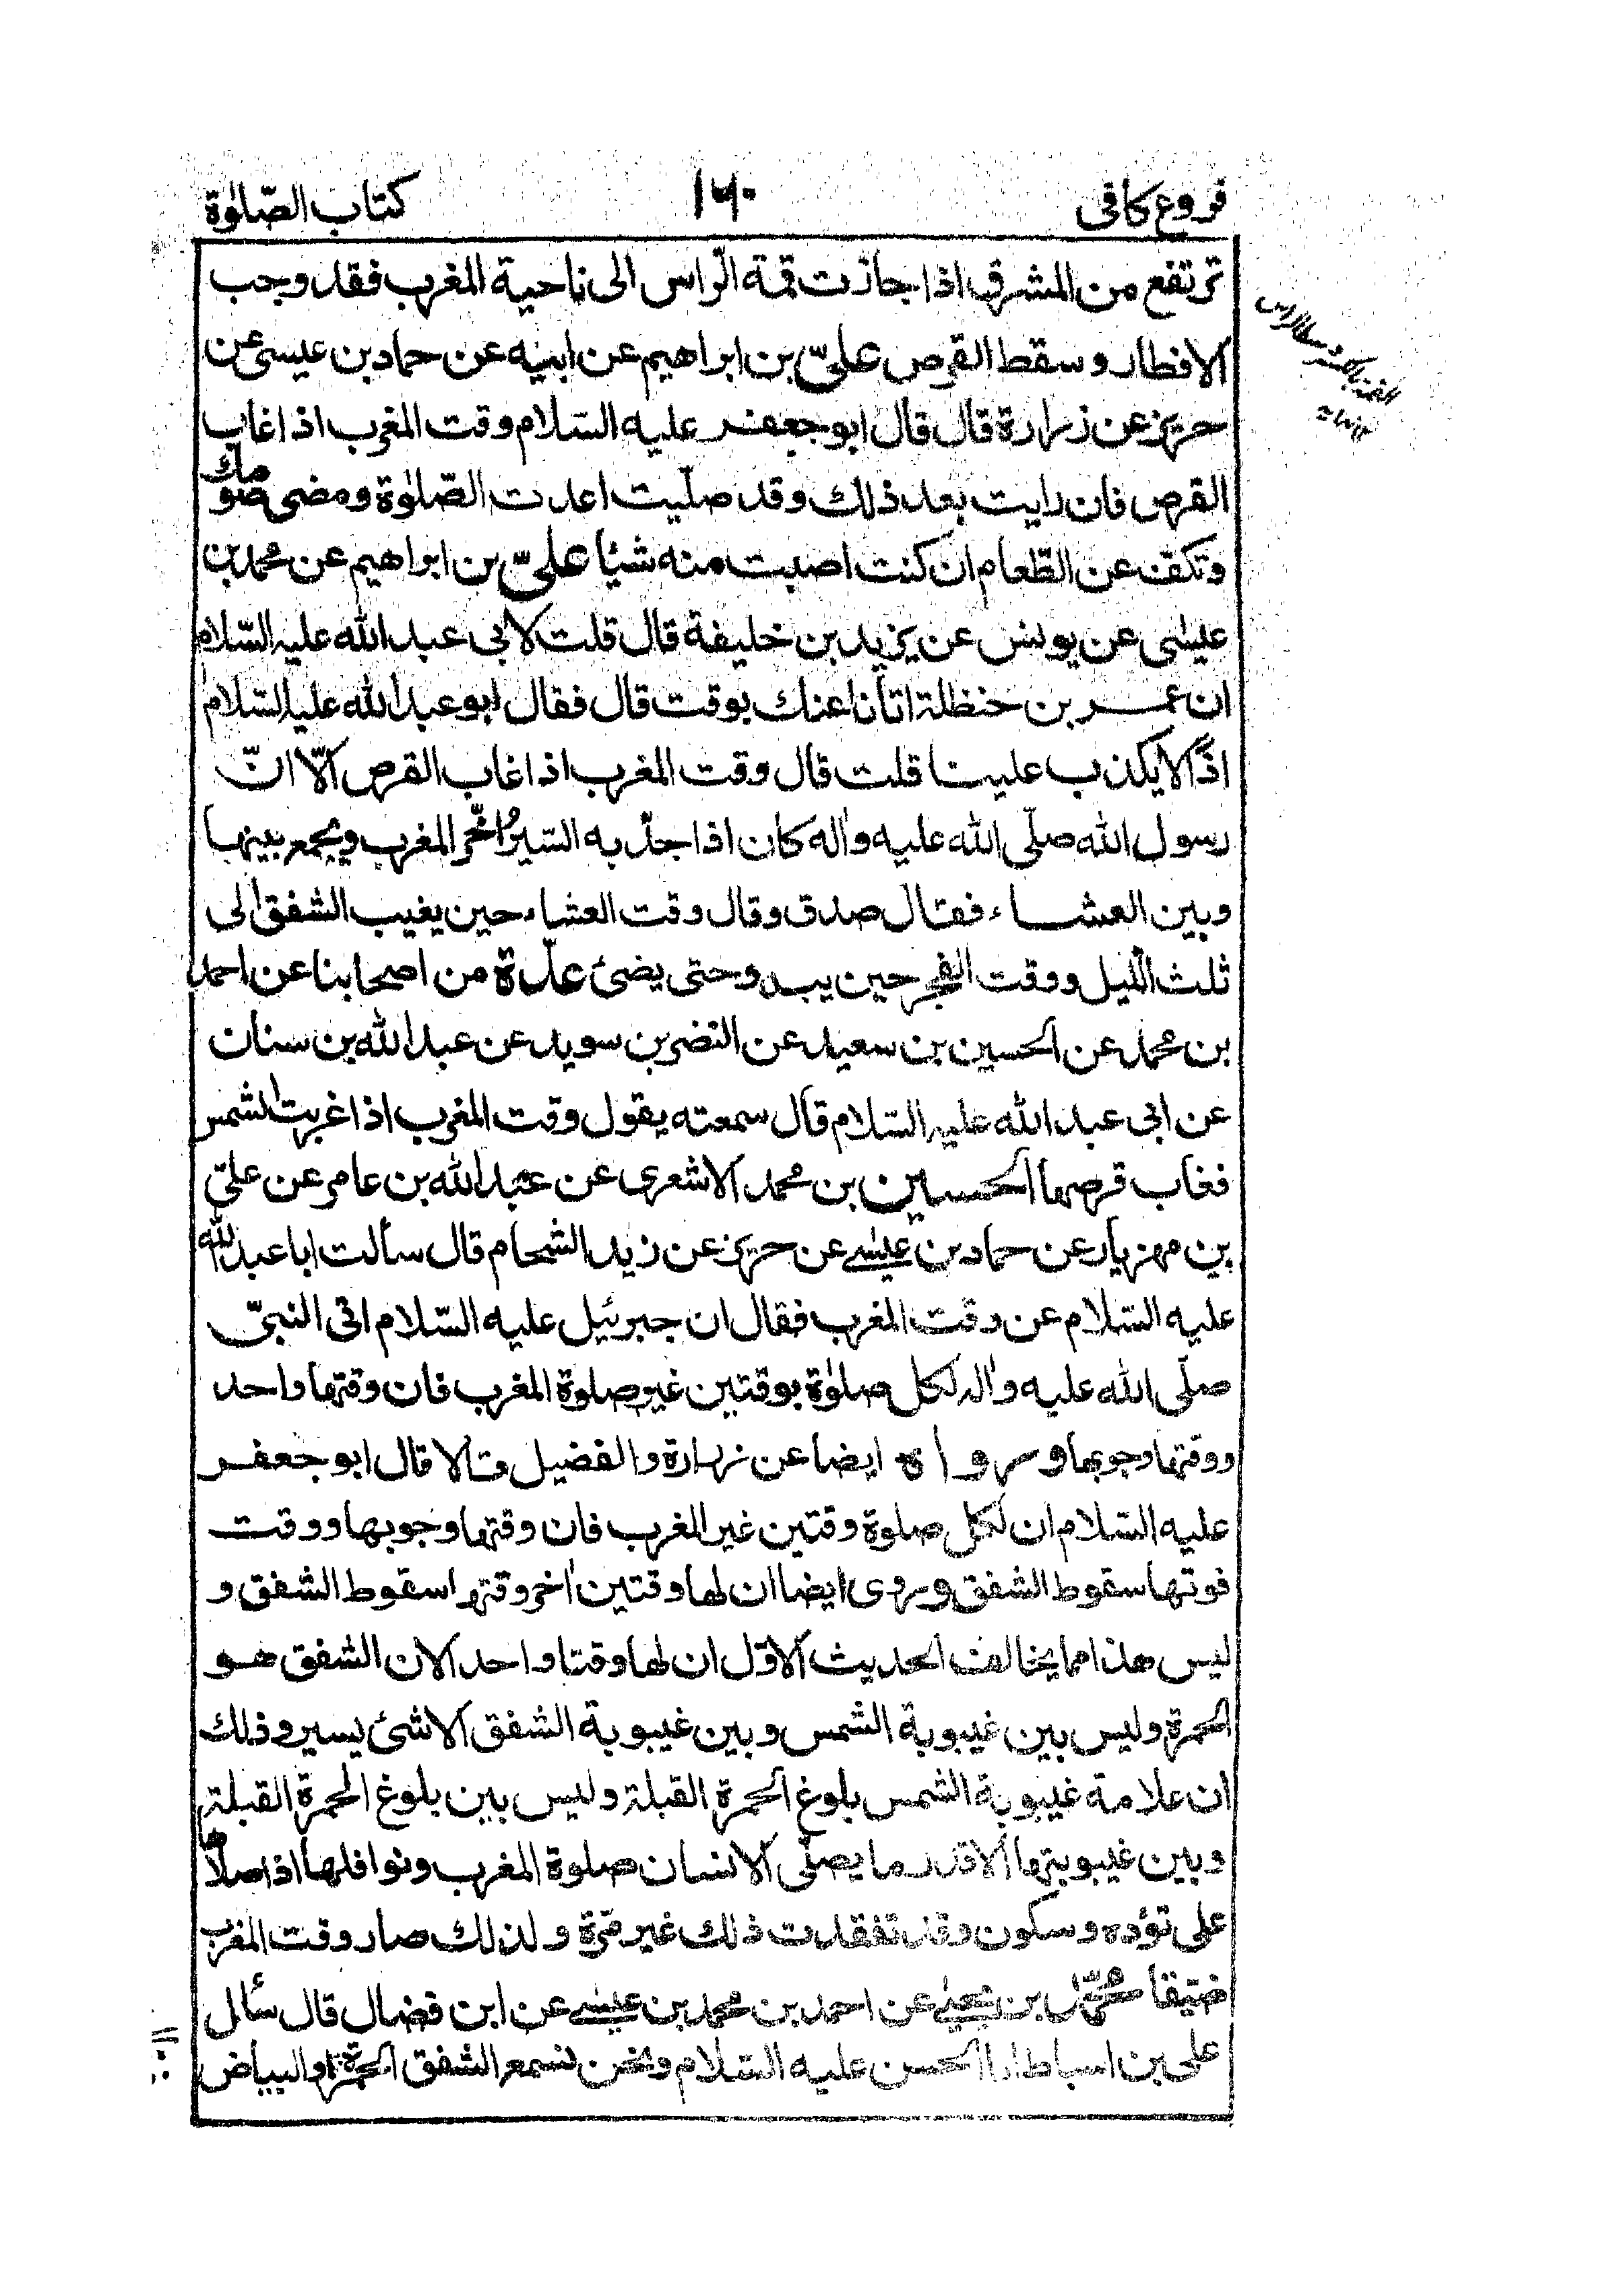 فروع كافى ۱۶۰ كتاب الصّلٰوة
ترتفع من المشرق اذا جازت قمة الرّاس الى ناحية المغرب فقد وجب
الافطار وسقط القرص علىّ بن ابراهيم عن ابيه عن حماد بن عيسى عن
حريز عن زرارة قال قال ابو جعفر عليه السّلام وقت المغرب اذا غاب
القرص فان رايت بعد ذلك وقد صلّيت اعدت الصّلٰوة ومضى صومك
وتكفّ عن الطّعام ان كنت اصبت منه شيئا علىّ بن ابراهيم عن محمد بن
عيسٰى عن يونس عن يزيد بن خليفة قال قلت لابى عبد الله عليه السّلام
ان عمر بن حنظلة اتانا عنك بوقت قال فقال ابو عبد الله عليه السّلام
اذًا لا يكذب علينا قلت قال وقت المغرب اذا غاب القرص الّا انّ
رسول الله صلّى الله عليه واٰله كان اذا جدّ به السّير اخّر المغرب ويجمع بينها
وبين العشاء فقال صدق وقال وقت العشاء حين يغيب الشفق الى
ثلث اللّيل ووقت الفجر حين يبدو حتى يضئ عدّة من اصحابنا عن احمد
بن محمد عن الحسين بن سعيد عن النضر بن سويد عن عبد الله بن سنان
عن ابى عبد الله عليه السّلام قال سمعته يقول وقت المغرب اذا غربت الشمس
فغاب قرصها الحسين بن محمد الاشعرى عن عبد الله بن عامر عن علىّ
بن مهزيار عن حماد بن عيسٰى عن حريز عن زيد الشحام قال سألت ابا عبد الله
عليه السّلام عن وقت المغرب فقال ان جبرئيل عليه السّلام اتى النبىّ
صلّى الله عليه واٰله لكل صلوٰة بوقتين غير صلوة المغرب فان وقتها واحد
ووقتها وجوبها ورواه ايضا عن زرارة والفضيل قالا قال ابو جعفر
عليه السّلام ان لكل صلوة وقتين غير المغرب فان وقتها وجوبها ووقت
فوتها سقوط الشفق وروى ايضا ان لها وقتين اٰخر وقتها سقوط الشفق و
ليس هذا مما يخالف الحديث الاوّل ان لها وقتا واحدا لان الشفق هو
الحمرة وليس بين غيبوبة الشمس وبين غيبوبة الشفق الا شئ يسير وذلك
ان علامة غيبوبة الشمس بلوغ الحمرة القبلة وليس بين بلوغ الحمرة القبلة
وبين غيبوبتها الا قدر ما يصلّى الانسان صلوة المغرب ونوافلها اذا صلّاها
على تؤده وسكون وقد تفقدت ذلك غير مرّة ولذلك صار وقت المغرب
ضيّقا محمّد بن يحيٰى عن احمد بن محمد بن عيسٰى عن ابن فضال قال سأل
على بن اسباط ابا الحسن عليه السّلام ونحن نسمع الشفق الحمرة او البياض